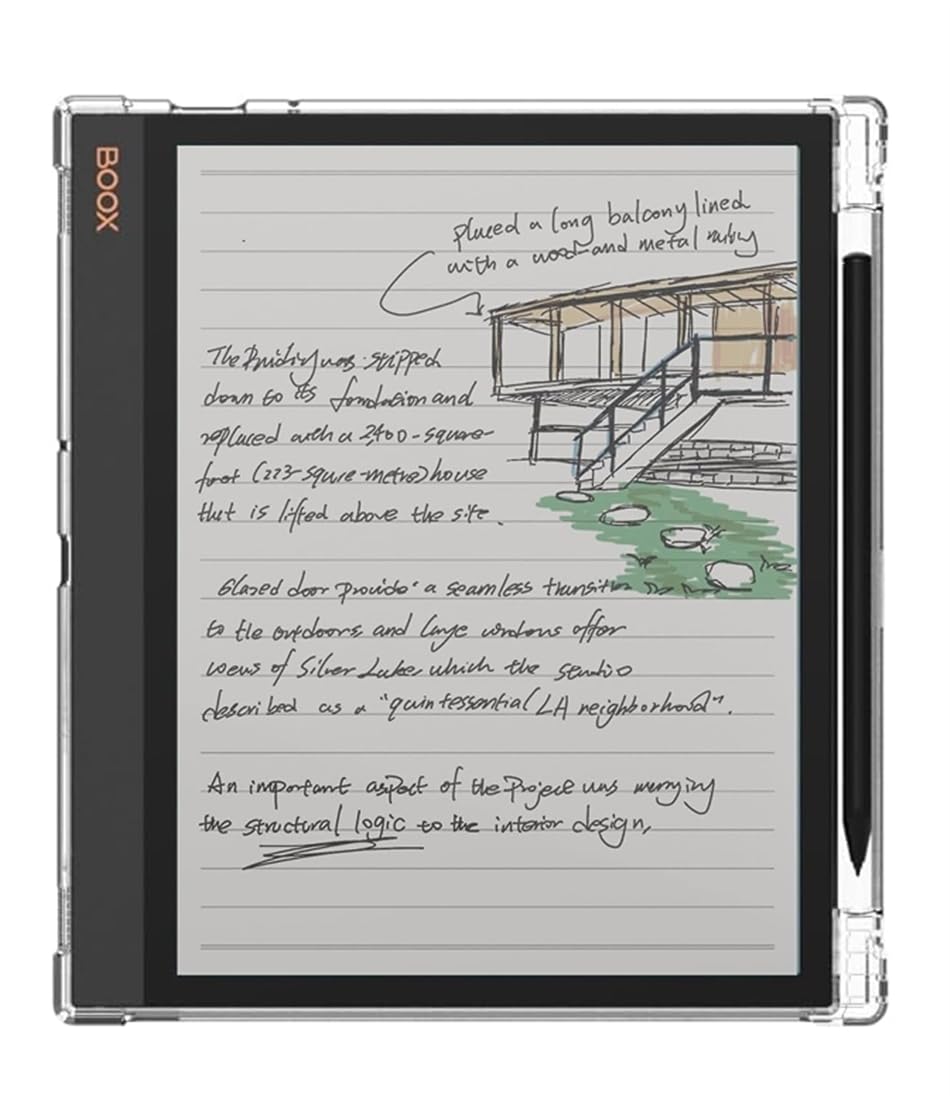 BOOX
placed a long balcony lined
with a wood and metal
The Building was stripped
down to its foundation and
replaced with a 2,400-square-
foot (223-squre-metre) house
that is lifted above the site.
Glazed door provide a seamless
to the outdoors and large windows offer
views of Silver Lake, which the studio
described as a "quintessential LA neighborhood".
An important aspect of the Project was marrying
the structural logic to the interior design,